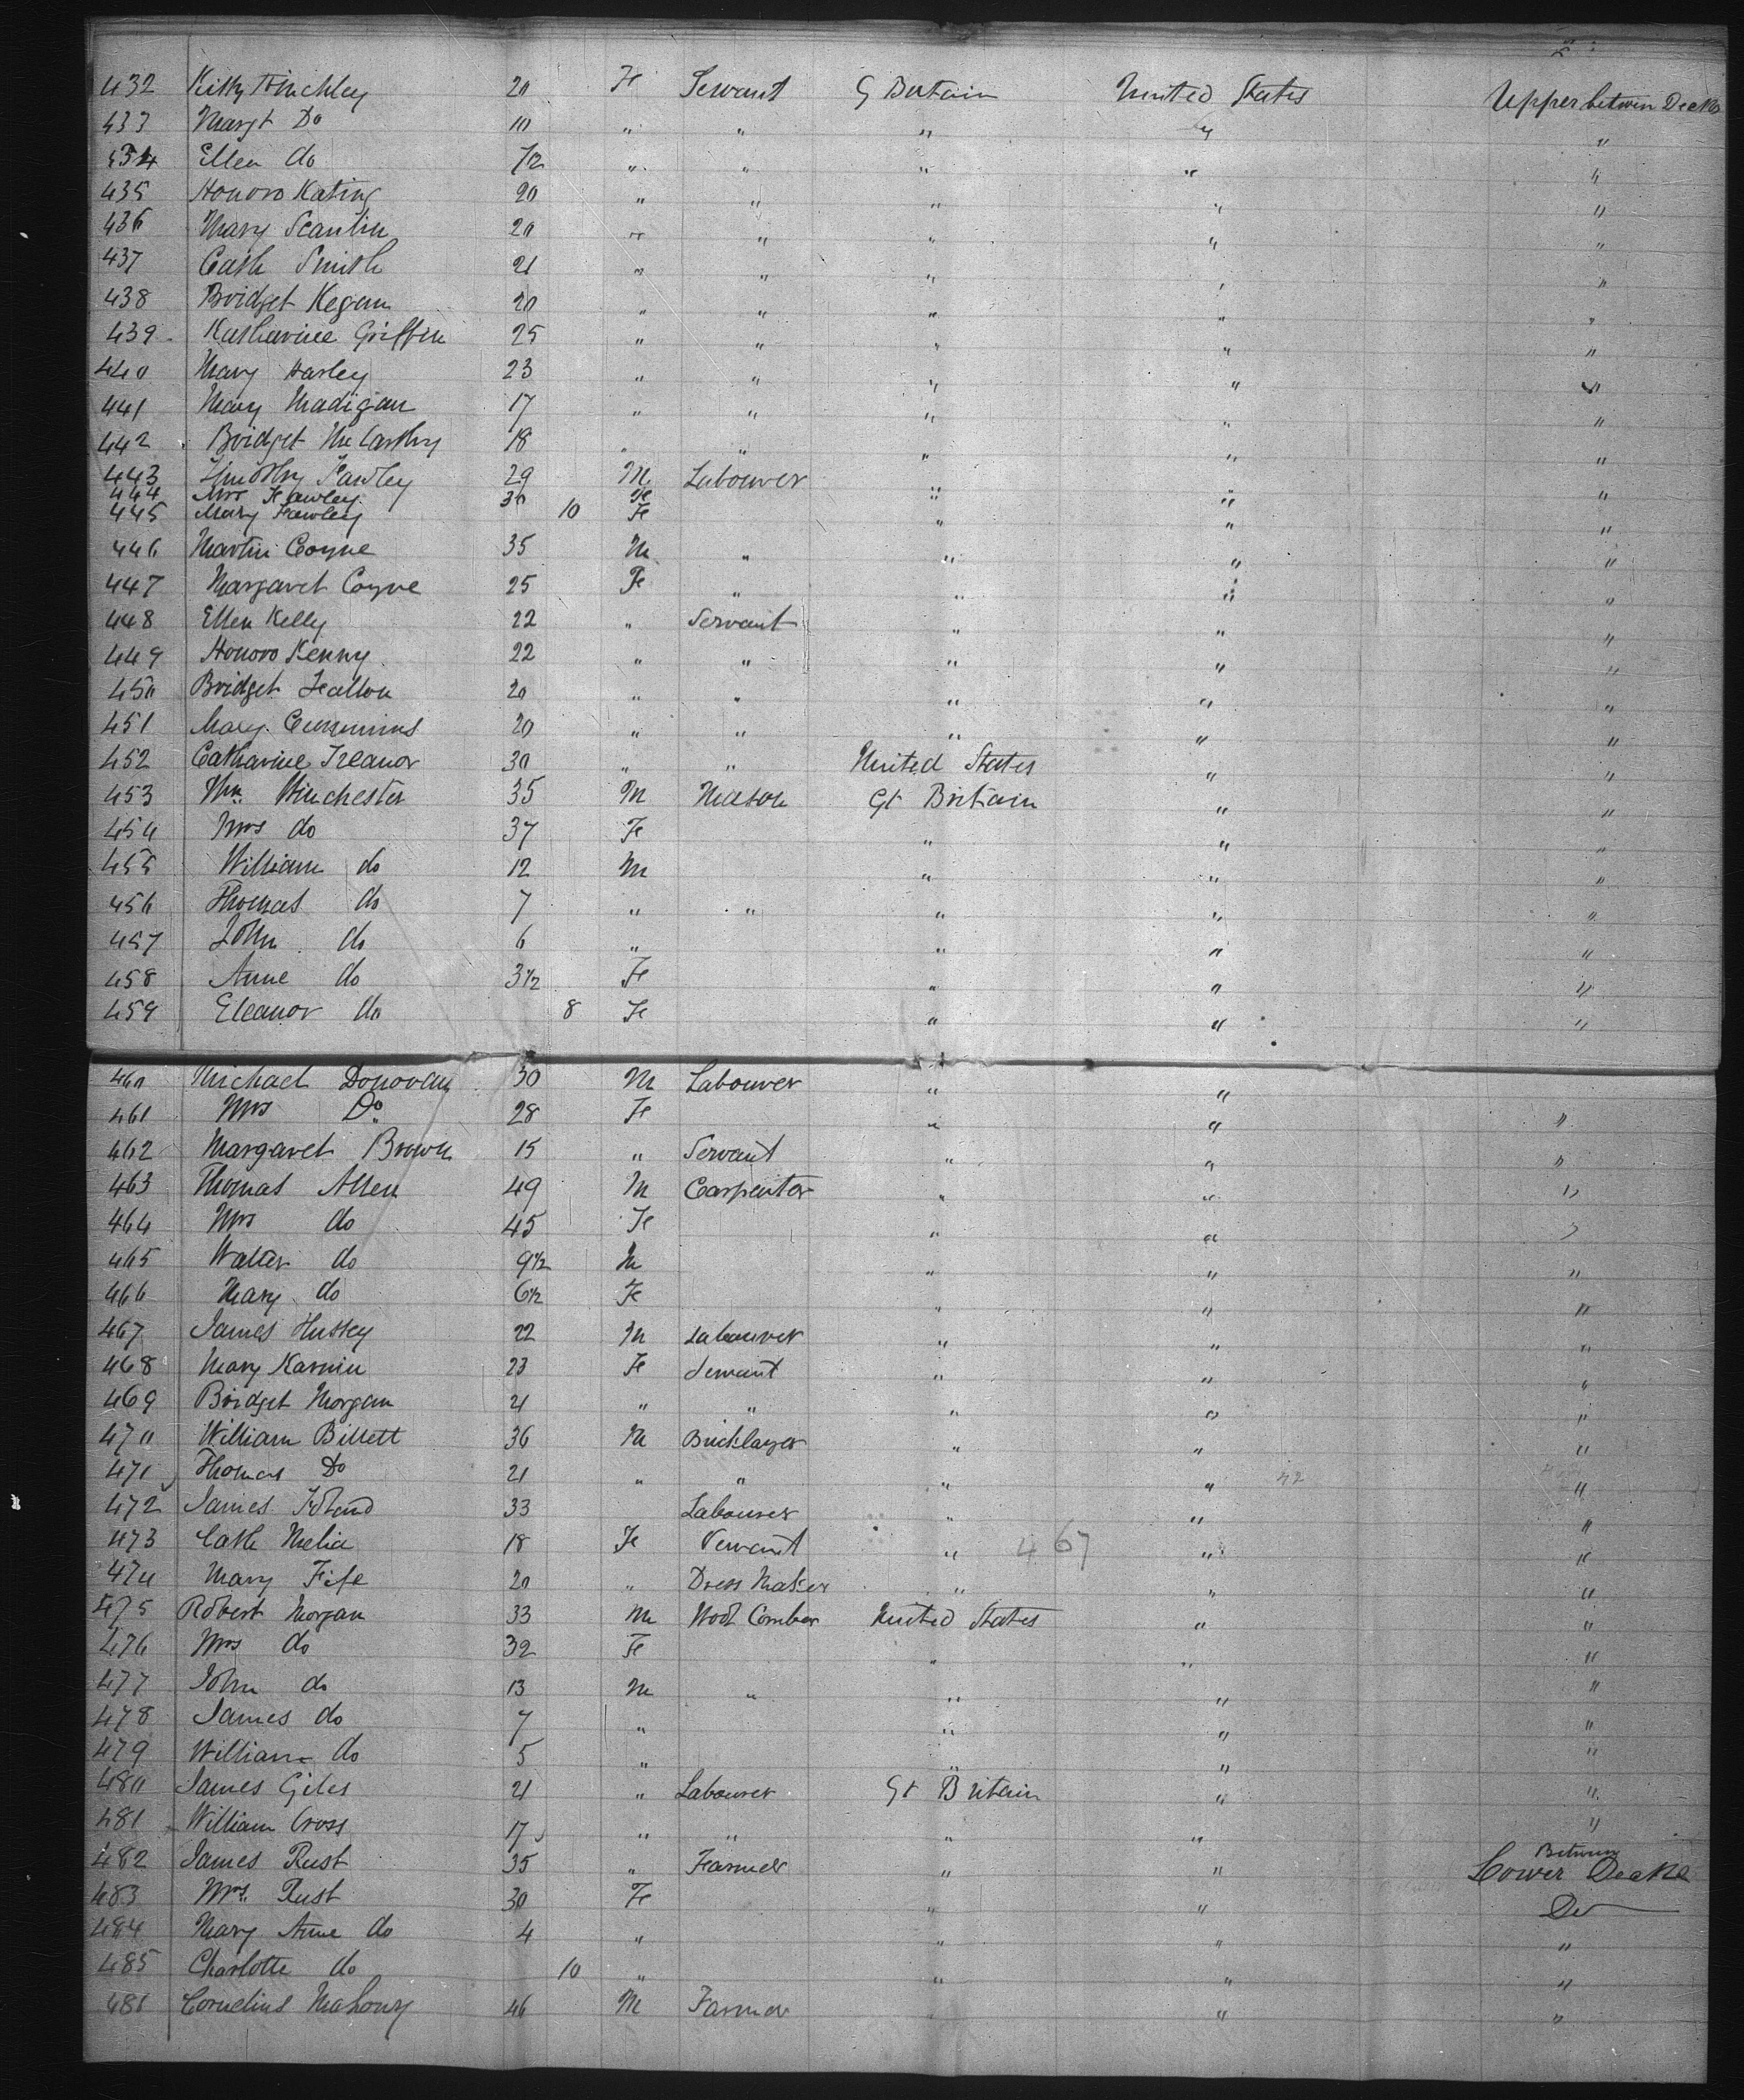 432 Kitty Hinchley 20 Fe Servant G Britain United States Upper betwin Decks
433 Margt Do 10 " " " " "
434 Ellen do 1/2 " " " " "
435 Honoro Kating 20 " " " " "
436 Mary Scanlin 20 " " " " "
437 Cath Smith 21 " " " " "
438 Bridget Kegan 20 " " " " "
439 Katharine Griffin 25 " " " " "
440 Mary Harley 23 " " " " "
441 Mary Madigan 17 " " " " "
442 Bridget McCarthy 18 " " " " "
443 Timothy Fawley 29 M Labourer " " "
444 Mrs Fawley 30 Fe
445 Mary Fawley 10 Fe " " "
446 Martin Coyne 35 M " " " "
447 Margaret Coyne 25 Fe " " " "
448 Ellen Kelly 22 " Servant " " "
449 Honoro Kenny 22 " " " " "
450 Bridget Fallon 20 " " " " "
451 Mary Cummins 20 " " " " "
452 Catharine Treanor 30 " " United States " "
453 Wm Winchester 35 M Mason Gt Britain " "
454 Mrs do 37 Fe " " "
455 William do 12 M " " "
456 Thomas do 7 " " " " "
457 John do 6 " " " "
458 Anne do 3 1/2 Fe " " "
459 Eleanor do 8 Fe " " "
460 Michael Donovan 30 M Labourer " "
461 Mrs Do 28 Fe " " "
462 Margaret Brown 15 " Servant " " "
463 Thomas Allen 49 M Carpenter " " "
464 Mrs do 45 Fe " " "
465 Walter do 9 1/2 M " " "
466 Mary do 6 1/2 Fe " " "
467 James Hussey 22 M Labourer " " "
468 Mary Karnin 23 Fe Servant " " "
469 Bridget Morgan 21 " " " " "
470 William Billett 36 M Bricklayer " " "
471 Thomas Do 21 " " " " 42 "
472 James 33 Labourer " " "
473 Cath Melia 18 Fe Servant " 467 " "
474 Mary Fife 20 " Dress Maker " " "
475 Robert Morgan 33 M Wool Comber United States " "
476 Mrs do 32 Fe " " "
477 John do 13 M " " " "
478 James do 7 " " " "
479 William do 5 " " " "
480 James Giles 21 " Labourer Gt Britain " "
481 William Cross 17 " " " " "
482 James Rust 35 " Farmer " " Between Lower Decks
483 Mrs. Rust 30 Fe " " Do
484 Mary Anne do 4 " " " "
485 Charlotte do 10 " " " "
486 Cornelius Mahony 46 M Farmer " " "